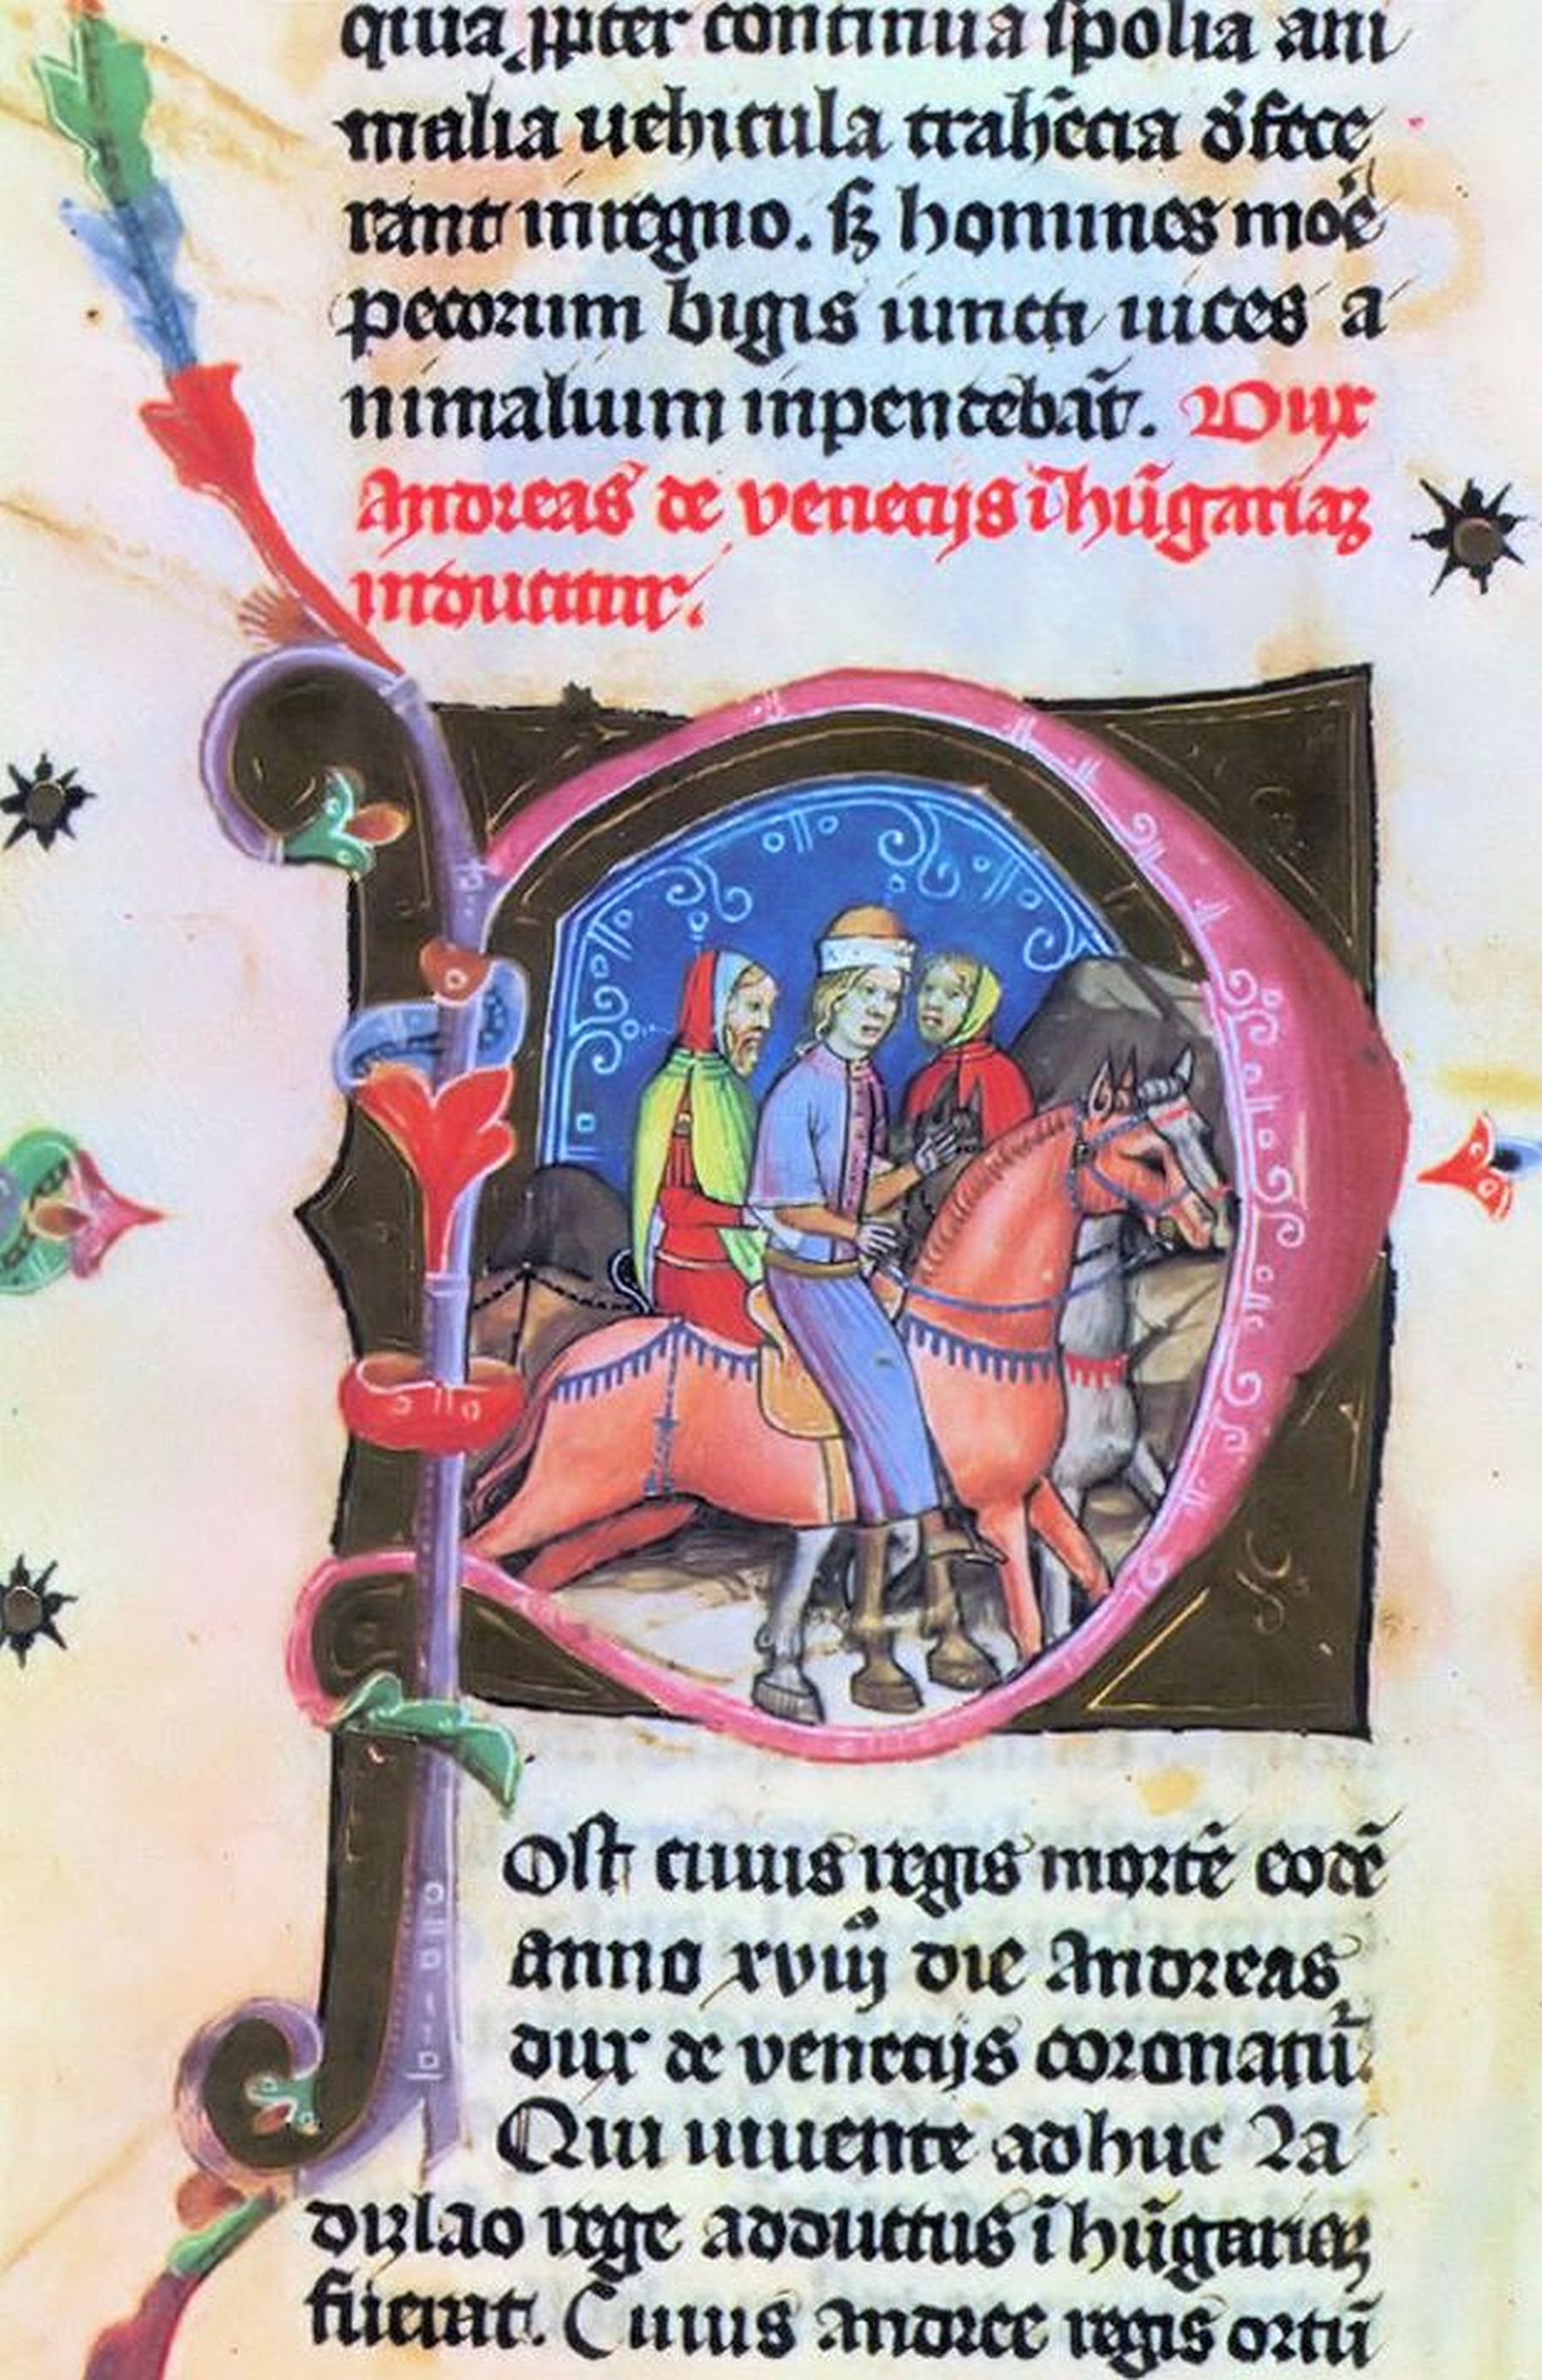 quia propter continua spolia ani
malia uehicula trahēcia d̄fece
rant in regno. sꝫ homines mo͛e
pecorum bigis iuncti uices a
nimalium inpendebāt. Dux
Andreas de venecijs ī hūgariaꝫ
inducitur.
Ost cuius regis mortē eodē
anno xviij die Andreas
dux de venecijs coronatur.
Qui uiuente adhuc La
dizlao rege adductus ī hūgariaꝫ
fuerat. Cuius Andree regis ortū